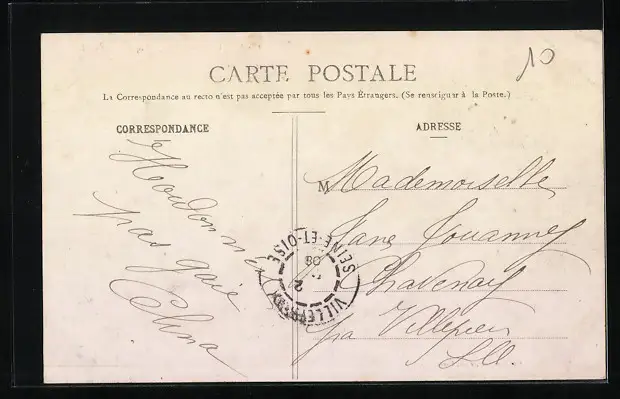 10
CARTE POSTALE
La Correspondance au recto n'est pas acceptée par tous les Pays Étrangers. (Se renseigner à la Poste.)
CORRESPONDANCE
ADRESSE
M Mademoiselle
Jane Jouanney
Chavenay
par Villepreux
pas gaie
SEINE-ET-OISE
08
2